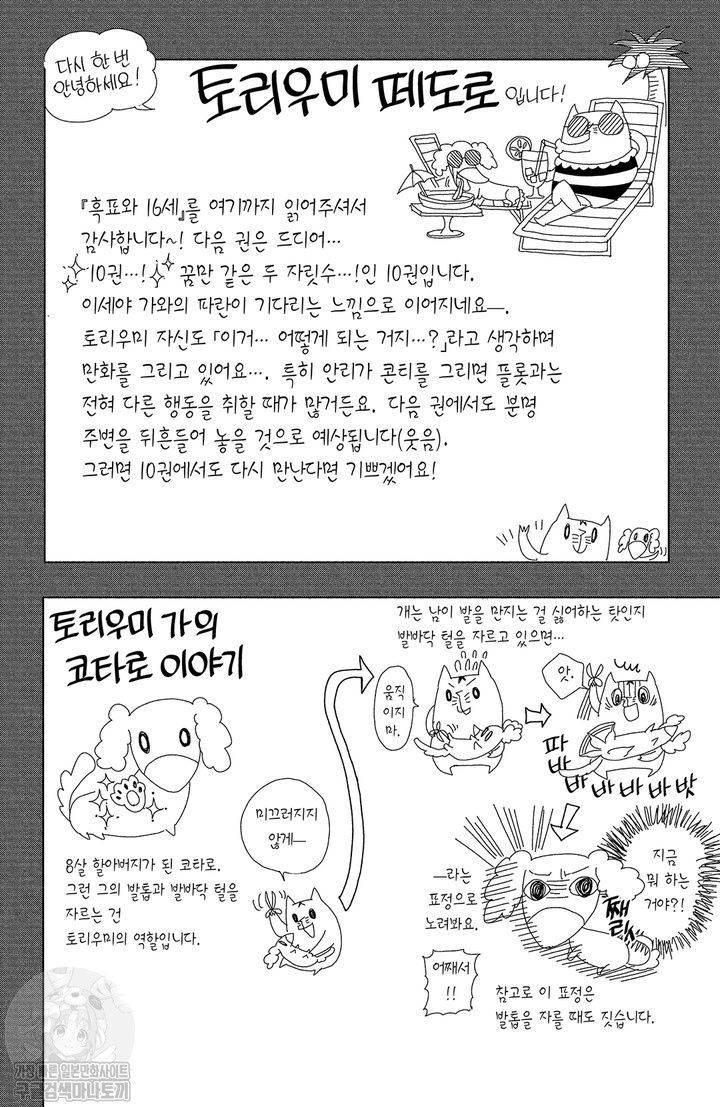 다시 한 번
안녕하세요!
토리우미 페도로입니다!
『흑표와 16세』를 여기까지 읽어주셔서
감사합니다~! 다음 권은 드디어…
10권…! 꿈만 같은 두 자릿수…!인 10권입니다.
이세야 가와의 파란이 기다리는 느낌으로 이어지네요—.
토리우미 자신도 「이거… 어떻게 되는 거지…?」라고 생각하며
만화를 그리고 있어요…. 특히 안리가 콘티를 그리면 플롯과는
전혀 다른 행동을 취할 때가 많거든요. 다음 권에서도 분명
주변을 뒤흔들어 놓을 것으로 예상됩니다(웃음).
그러면 10권에서도 다시 만난다면 기쁘겠어요!
토리우미 가의
코타로 이야기
8살 할아버지가 된 코타로.
그런 그의 발톱과 발바닥 털을
자르는 건
토리우미의 역할입니다.
미끄러지지
않게—
개는 남이 발을 만지는 걸 싫어하는 탓인지
발바닥 털을 자르고 있으면…
움직
이지
마.
앗.
파
바
바
바
바
바
밧
지금
뭐 하는
거야?!
—라는
표정으로
노려봐요.
째
릿
어째서
!!
참고로 이 표정은
발톱을 자를 때도 짓습니다.
가장 빠른 일본만화사이트
구글검색마나토끼